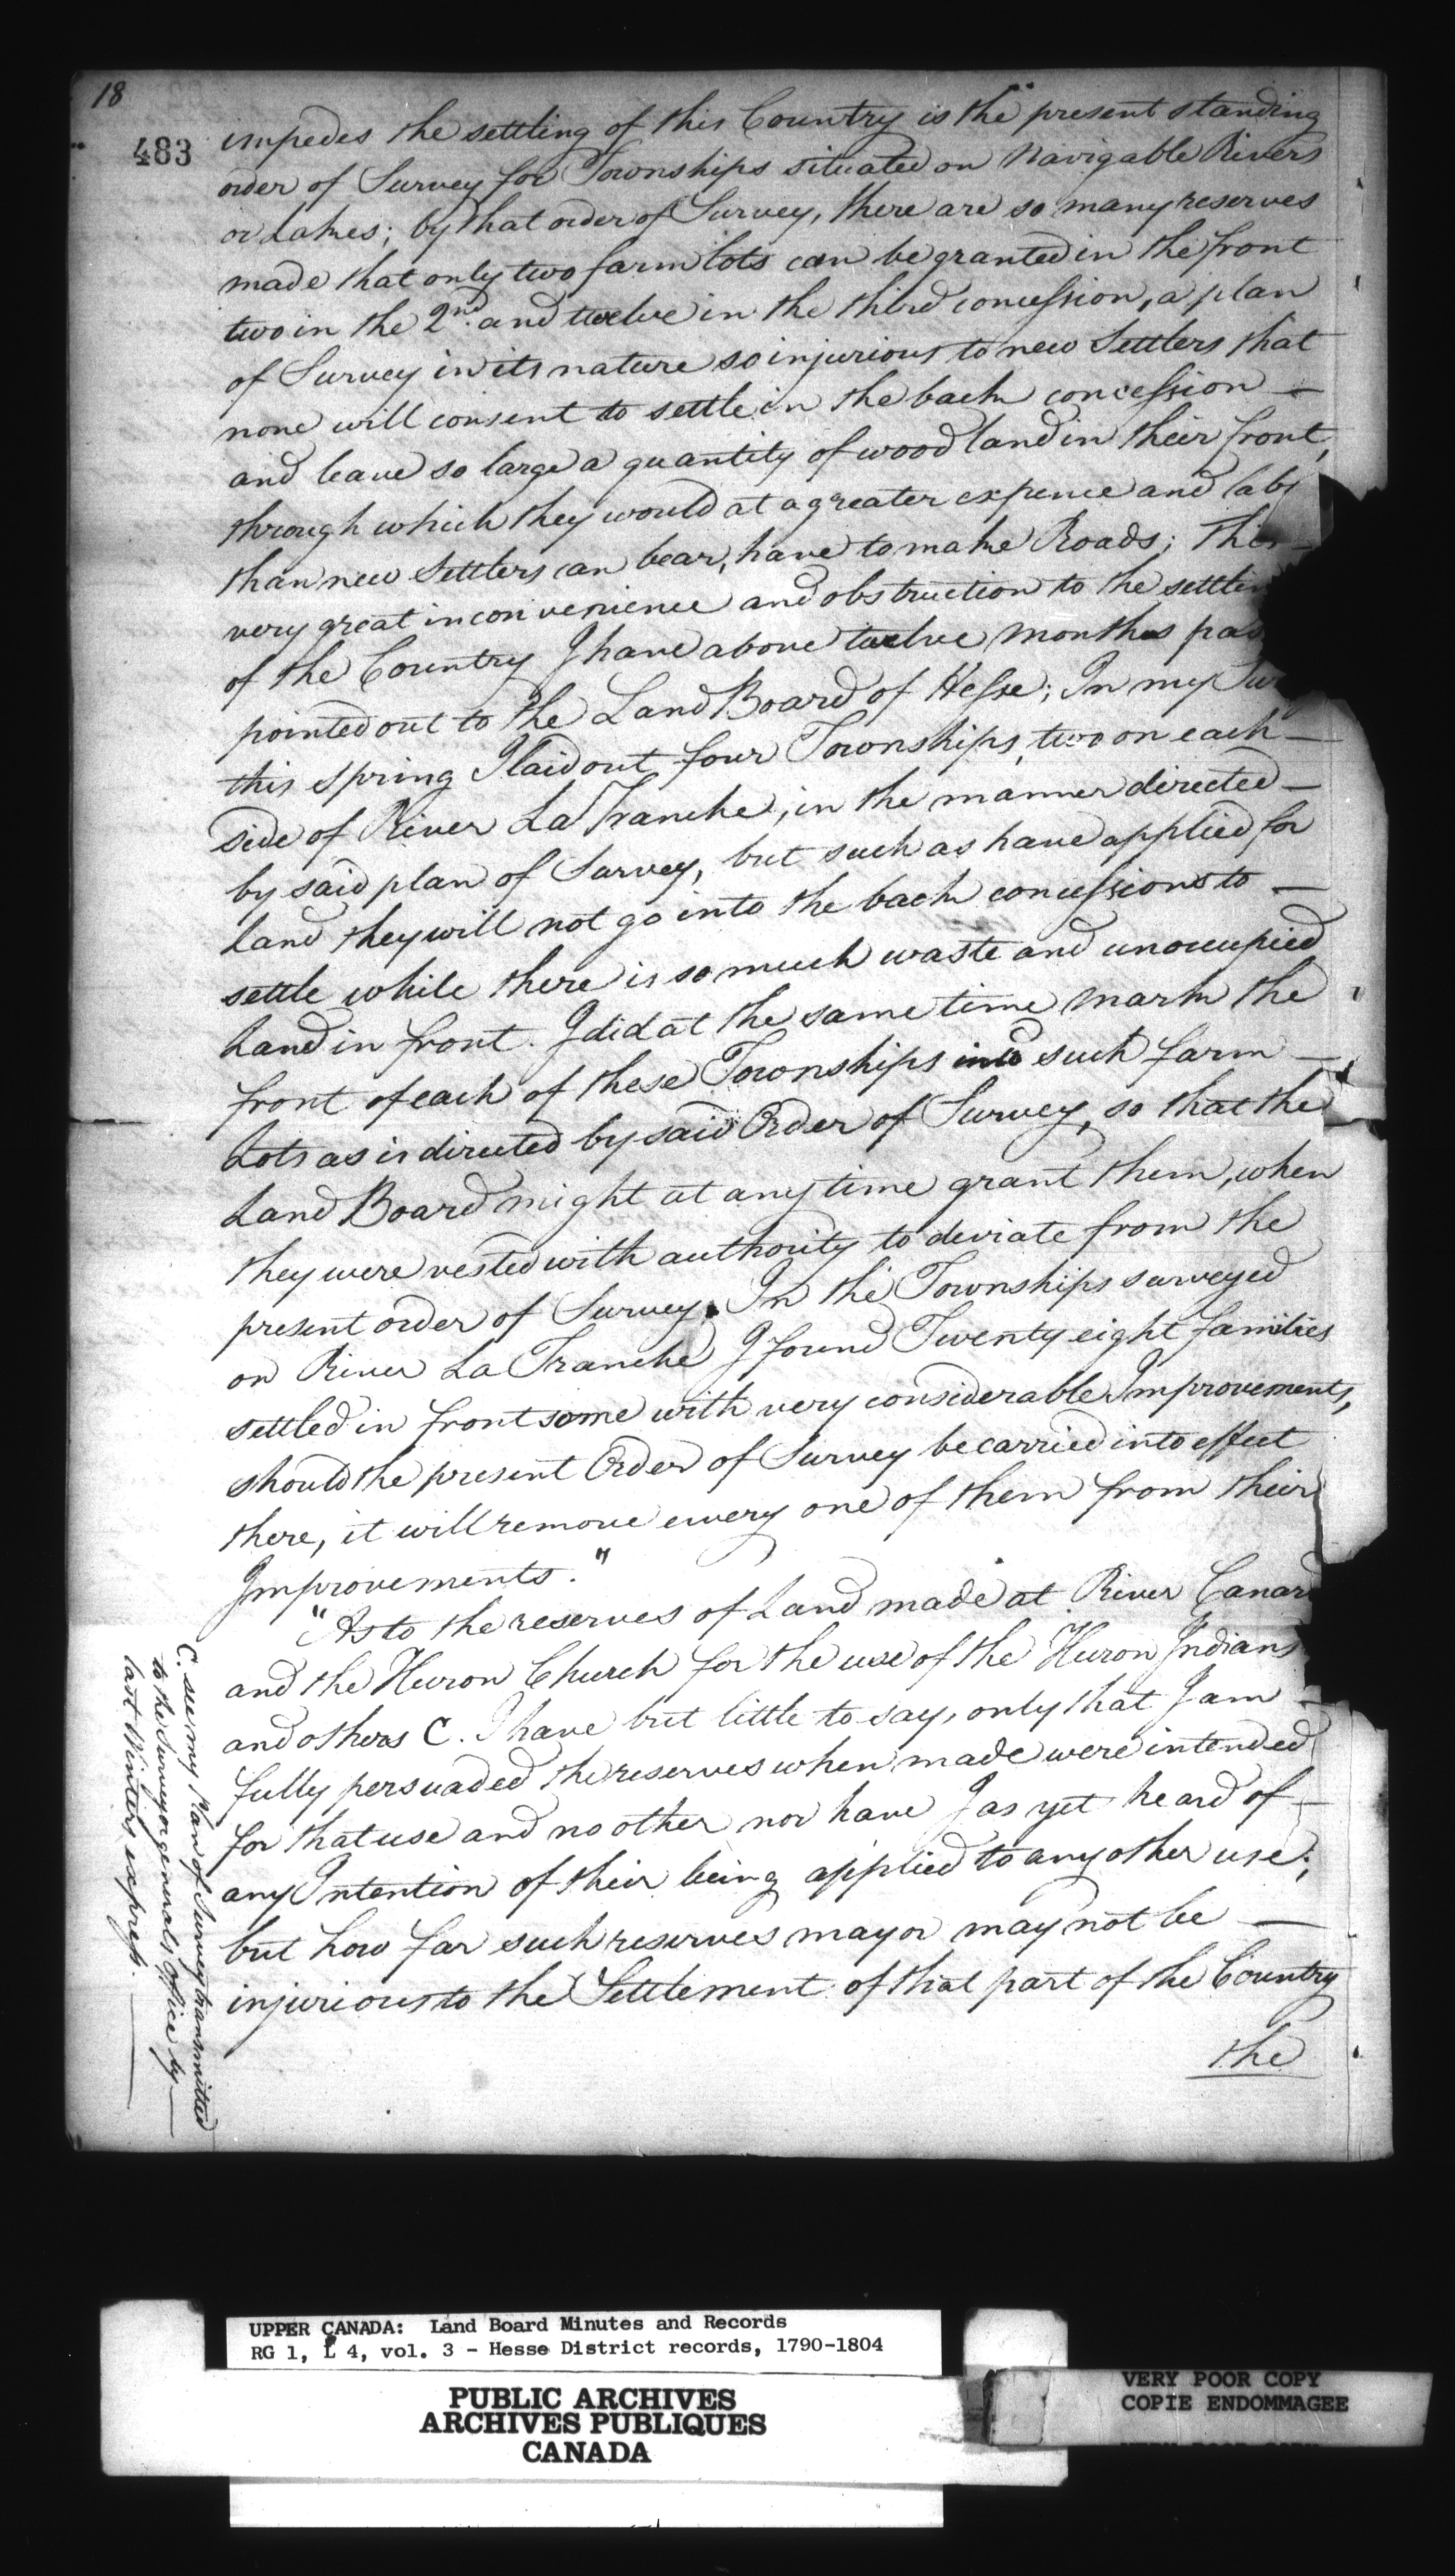 18
483
impedes the settling of this Country is the present standing
order of Survey for Townships situated on Navigable Rivers
or Lakes; by that order of Survey, there are so many reserves
made that only two farm lots can be granted in the front
two in the 2nd. and twelve in the third concession, a plan
of Survey in its nature so injurious to new Settlers that
none will consent to settle in the back concession —
and leave so large a quantity of wood land in their front,
through which they would at a greater expence and lab
than new Settlers can bear, have to make Roads; This —
very great inconvenience and obstruction to the settlin
of the Country I have above twelve months pas
pointed out to the Land Board of Hesse; In my Su
this spring I laid out four Townships, two on each —
side of River La Tranche, in the manner directed —
by said plan of Survey, but such as have applied for
Land they will not go into the back concessions to —
settle while there is so much waste and unoccupied
Land in front. I did at the same time mark the
front of each of these Townships into such farm —
Lots as is directed by said Order of Survey, so that the
Land Board might at any time grant them, when
they were vested with authority to deviate from the
present order of Survey. In the Townships surveyed
on River La Tranche I found Twenty eight families
settled in front some with very considerable Improvements,
should the present Order of Survey be carried into effect
there, it will remove every one of them from their
Improvements."
"As to the reserves of Land made at River Canard
and the Huron Church for the use of the Huron Indians
and others C. I have but little to say, only that I am —
fully persuaded the reserves when made were intended
for that use and no other nor have I as yet heard of —
any Intention of their being applied to any other use;
but how far such reserves may or may not be —
injurious to the Settlement of that part of the Country
the
C. see my Plan of Survey transmitted
to the Surveyor generals Office by —
last Winters express. —
UPPER CANADA: Land Board Minutes and Records
RG 1, L 4, vol. 3 - Hesse District records, 1790-1804
PUBLIC ARCHIVES
ARCHIVES PUBLIQUES
CANADA
VERY POOR COPY
COPIE ENDOMMAGEE